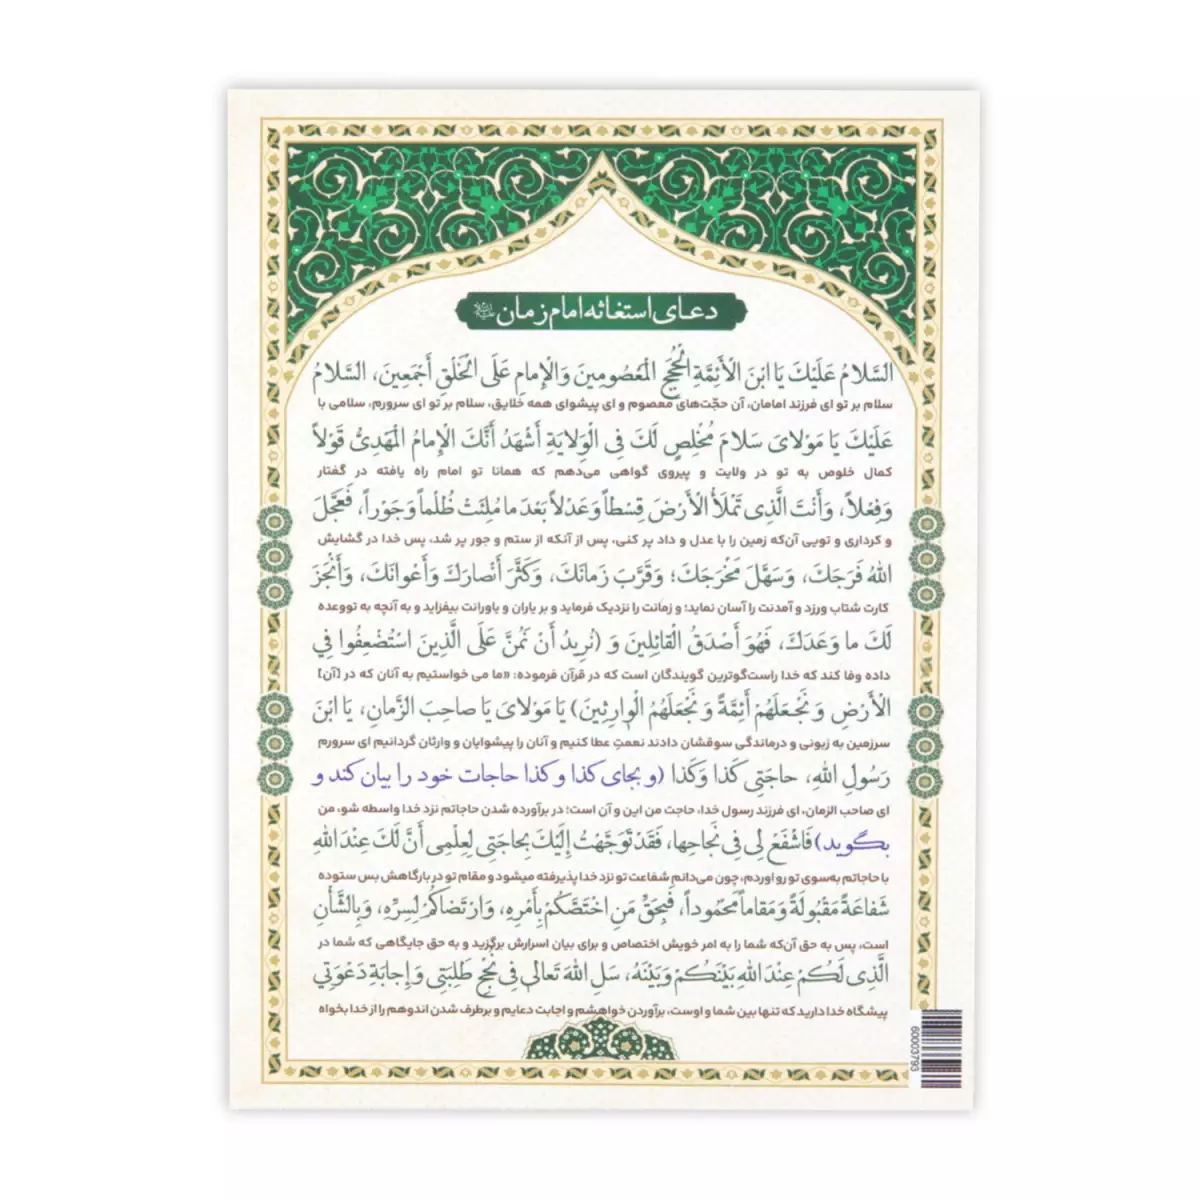 دعای استغاثه امام زمان
السَّلامُ عَلَيْكَ يَا ابْنَ الْأَئِمَّةِ الْحُجَجِ الْمَعْصُومِينَ وَالْإِمامِ عَلَى الْخَلْقِ أَجْمَعِينَ، السَّلامُ
سلام بر تو ای فرزند امامان، آن حجّت‌های معصوم و ای پیشوای همه خلایق، سلام بر تو ای سرورم، سلامی با
عَلَيْكَ يَا مَوْلايَ سَلامَ مُخْلِصٍ لَكَ فِي الْوِلايَةِ أَشْهَدُ أَنَّكَ الْإِمامُ الْمَهْدِيُّ قَوْلاً
کمال خلوص به تو در ولایت و پیروی گواهی می‌دهم که همانا تو امام راه یافته در گفتار
وَفِعْلاً، وَأَنْتَ الَّذِي تَمْلَأُ الْأَرْضَ قِسْطاً وَعَدْلاً بَعْدَ ما مُلِئَتْ ظُلْماً وَجَوْراً، فَعَجَّلَ
و کرداری و تویی آن‌که زمین را با عدل و داد پر کنی، پس از آنکه از ستم و جور پر شد، پس خدا در گشایش
اللهُ فَرَجَكَ، وَسَهَّلَ مَخْرَجَكَ؛ وَقَرَّبَ زَمانَكَ، وَكَثَّرَ أَنْصارَكَ وَأَعْوانَكَ، وَأَنْجَزَ
کارت شتاب ورزد و آمدنت را آسان نماید؛ و زمانت را نزدیک فرماید و بر یاران و یاورانت بیفزاید و به آنچه به تووعده
لَكَ ما وَعَدَكَ، فَهُوَ أَصْدَقُ الْقائِلِينَ وَ (نُرِيدُ أَنْ نَمُنَّ عَلَى الَّذِينَ اسْتُضْعِفُوا فِي
داده وفا کند که خدا راست‌گوترین گویندگان است که در قرآن فرموده: «ما می خواستیم به آنان که در [آن]
الْأَرْضِ وَ نَجْعَلَهُمْ أَئِمَّةً وَ نَجْعَلَهُمُ الْوارِثِينَ) يَا مَوْلايَ يَا صاحِبَ الزَّمانِ، يَا ابْنَ
سرزمین به زبونی و درماندگی سوقشان دادند نعمتِ عطا کنیم و آنان را پیشوایان و وارثان گردانیم ای سرورم
رَسُولِ اللهِ، حاجَتِي كَذا وَكَذا (و بجای کذا و کذا حاجات خود را بیان کند و
ای صاحب الزمان، ای فرزند رسول خدا، حاجت من این و آن است؛ در برآورده شدن حاجاتم نزد خدا واسطه شو، من
بگوید) فَاشْفَعْ لِي فِي نَجاحِها، فَقَدْ تَوَجَّهْتُ إِلَيْكَ بِحاجَتِي لِعِلْمِي أَنَّ لَكَ عِنْدَ اللهِ
با حاجاتم به‌سوی تو رو اوردم، چون می‌دانم شفاعت تو نزد خدا پذیرفته میشود و مقام تو در بارگاهش بس ستوده
شَفاعَةً مَقْبُولَةً وَمَقاماً مَحْمُوداً، فَبِحَقِّ مَنِ اخْتَصَّكُمْ بِأَمْرِهِ، وَارْتَضاكُمْ لِسِرِّهِ، وَبِالشَّأْنِ
است، پس به حق آن‌که شما را به امر خویش اختصاص و برای بیان اسرارش برگزید و به حق جایگاهی که شما در
الَّذِي لَكُمْ عِنْدَ اللهِ بَيْنَكُمْ وَبَيْنَهُ، سَلِ اللهَ تَعالى فِي نُجْحِ طَلِبَتِي وَإِجابَةِ دَعْوَتِي
پیشگاه خدا دارید که تنها بین شما و اوست، برآوردن خواهشم و اجابت دعایم و برطرف شدن اندوهم را از خدا بخواه
60003793